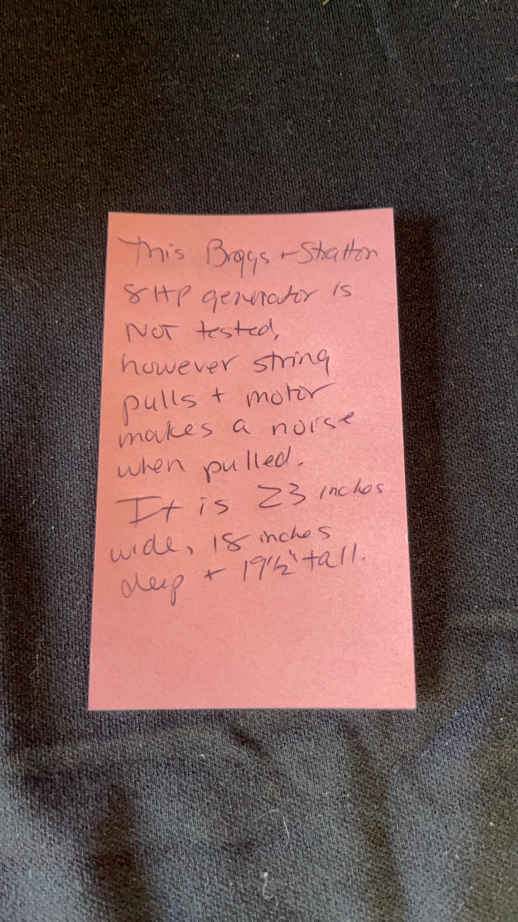 This Briggs + Stratton
8 HP generator is
NOT tested,
however string
pulls + motor
makes a noise
when pulled.
It is 23 inches
wide, 18 inches
deep + 19½" tall.